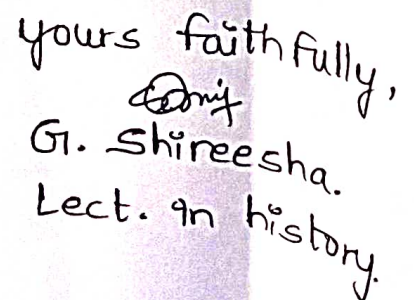 yours faithfully,
G. Shireesha.
Lect. In history.